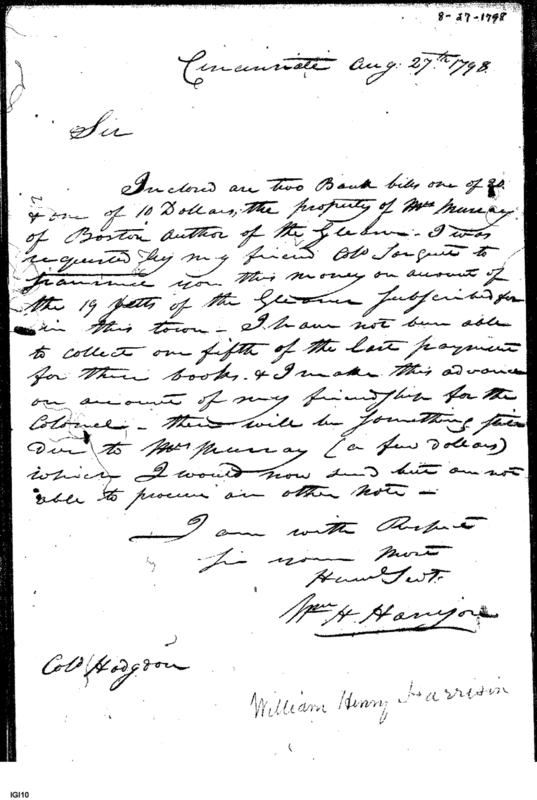 8-27-1798
Cincinnati Aug. 27th 1798
Sir
Inclosed are two Bank bills one of 20
& one of 10 Dollars, the property of Mrs Murray
of Boston Author of the Gleaner. I was
requested by my friend Colo Sargent to
you this money on account of
the 19 Setts of the Gleaner Subscribed for
in this town – I have not been able
to collect one fifth of the last payment
for these books. & I make this advance
on account of my friendship for the
Colonel – there will be something
due to Mrs Murray (a few dollars)
which I would now send but am not
able to procure an other Note –
I am with Respect
Sir your Most
Huml Servt.
Wm H. Harrison
Colo Hodgdon
William Henry Harrison
IGI10